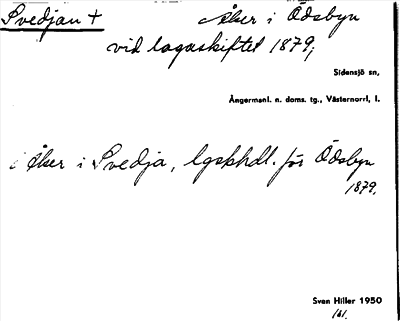 Svedjan + Åker i Ödsbyn
vid lagaskiftet 1879;
Sidensjö sn,
Ångermanl. n. doms. tg., Västernorrl, l.
i Åker i Svedja, lgskhdl. för Ödsbyn
1879.
Sven Hiller 1950
161.